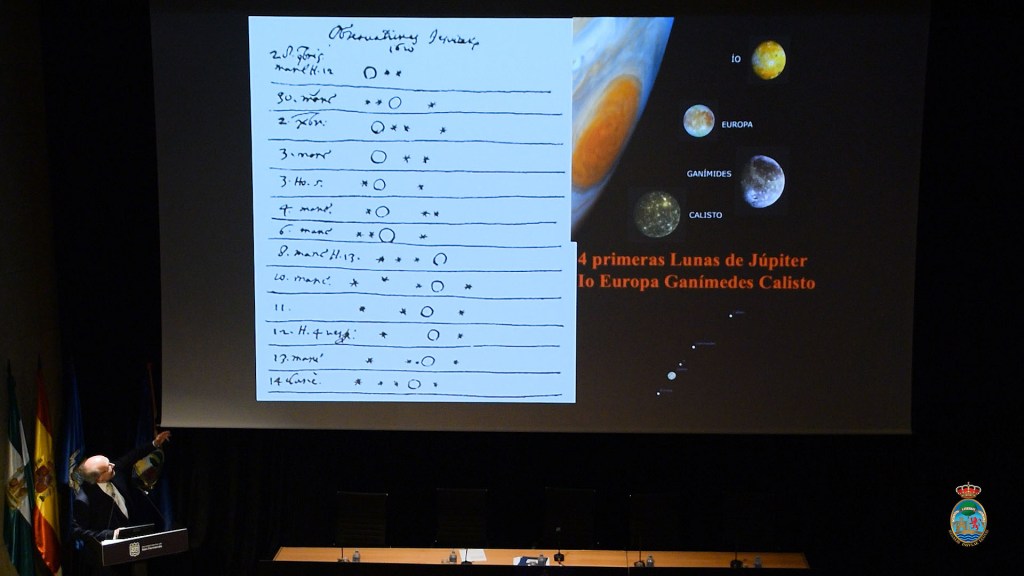 Observationes Jesuitae
1610
2. S. 9bris
mane H. 12
30. mane
2. xbri:
3. mane
3. Ho. 5.
4. mane.
6. mane
8. mane H. 13.
10. mane.
11.
12. H. 4 vesp:
13. mane
14 Casi.
ÍO
EUROPA
GANÍMIDES
CALISTO
4 primeras Lunas de Júpiter
Io Europa Ganímedes Calisto